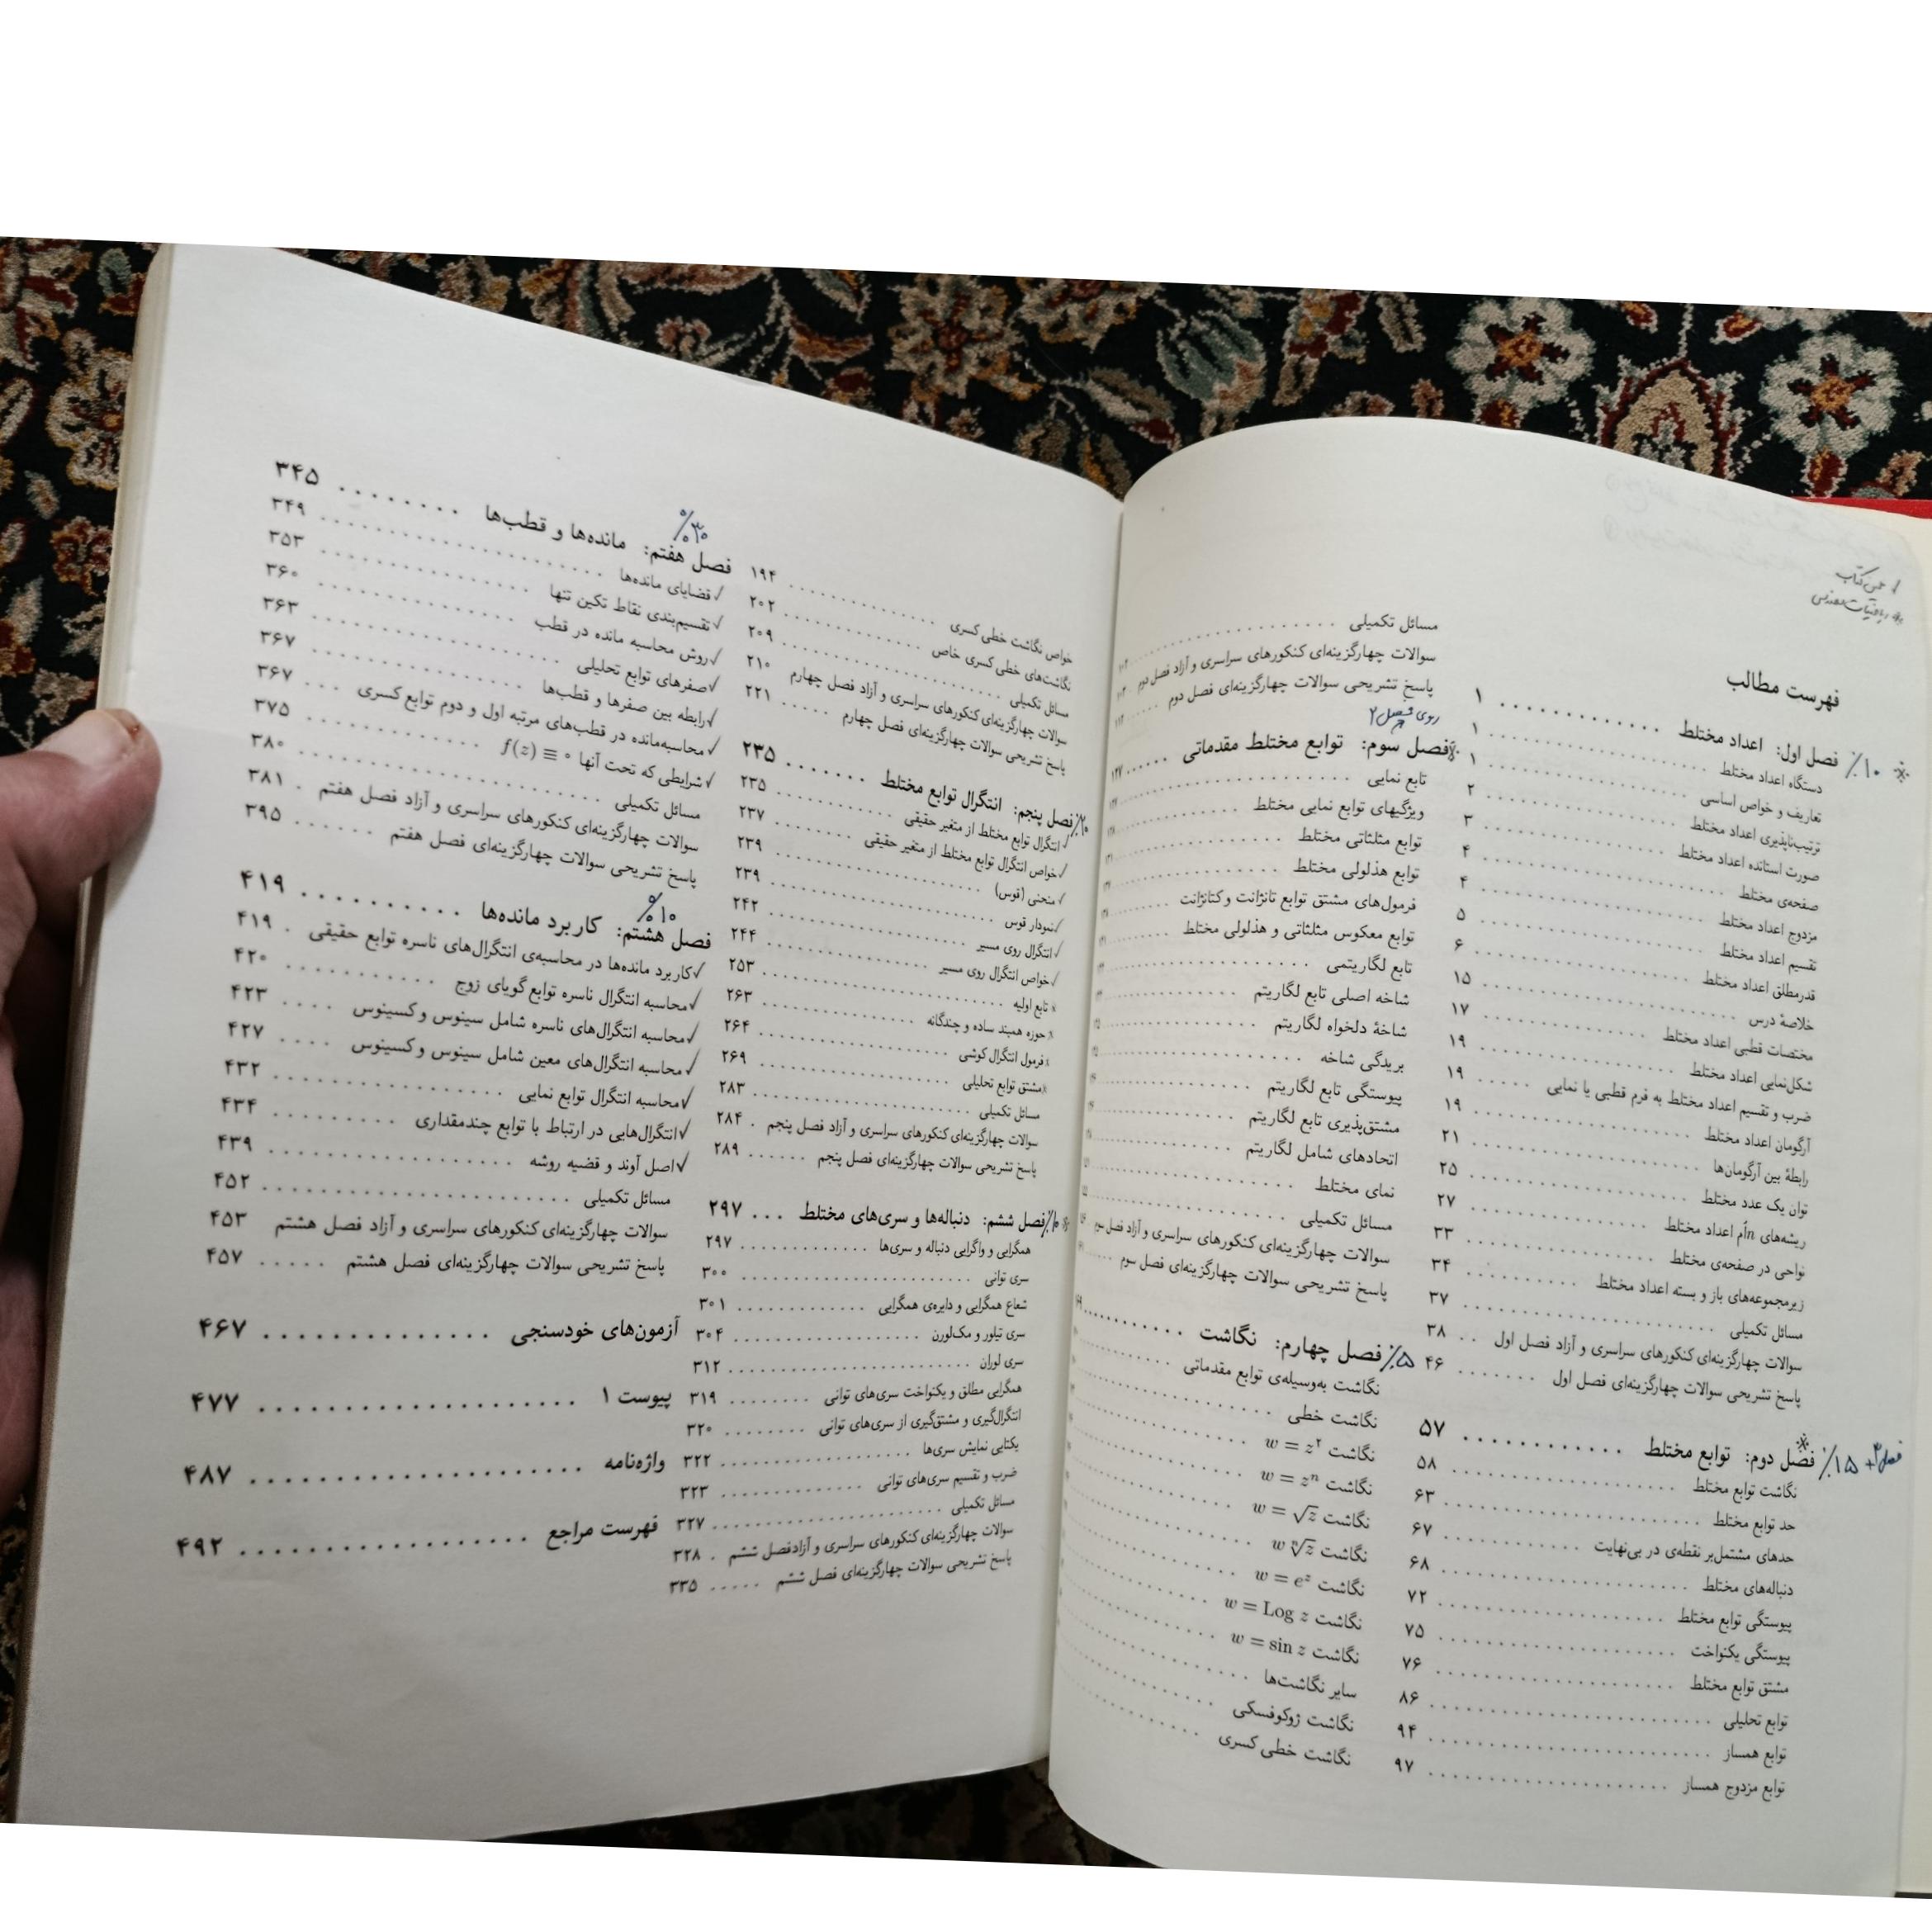 ✓ همین کتاب
* ریاضیات مهندسی
فهرست مطالب
* ۱۰٪ فصل اول: اعداد مختلط ............ ۱
دستگاه اعداد مختلط ............ ۱
تعاریف و خواص اساسی ............ ۱
ترتیب‌ناپذیری اعداد مختلط ............ ۲
صورت استانده اعداد مختلط ............ ۳
صفحه‌ی مختلط ............ ۴
مزدوج اعداد مختلط ............ ۴
تقسیم اعداد مختلط ............ ۵
قدرمطلق اعداد مختلط ............ ۶
خلاصهٔ درس ............ ۱۵
مختصات قطبی اعداد مختلط ............ ۱۷
شکل‌نمایی اعداد مختلط ............ ۱۹
ضرب و تقسیم اعداد مختلط به فرم قطبی یا نمایی ..... ۱۹
آرگومان اعداد مختلط ............ ۱۹
رابطهٔ بین آرگومان‌ها ............ ۲۱
توان یک عدد مختلط ............ ۲۵
ریشه‌های nاُم اعداد مختلط ............ ۲۷
نواحی در صفحه‌ی مختلط ............ ۳۳
زیرمجموعه‌های باز و بسته اعداد مختلط .......... ۳۴
مسائل تکمیلی ............ ۳۷
سوالات چهارگزینه‌ای کنکورهای سراسری و آزاد فصل اول .. ۳۸
پاسخ تشریحی سوالات چهارگزینه‌ای فصل اول ....... ۴۶
فصل ۳ + ۱۵٪ * فصل دوم: توابع مختلط ............ ۵۷
نگاشت توابع مختلط ............ ۵۸
حد توابع مختلط ............ ۶۳
حدهای مشتمل‌بر نقطه‌ی در بی‌نهایت ............ ۶۷
دنباله‌های مختلط ............ ۶۸
پیوستگی توابع مختلط ............ ۷۲
پیوستگی یکنواخت ............ ۷۵
مشتق توابع مختلط ............ ۷۶
توابع تحلیلی ............ ۸۶
توابع همساز ............ ۹۴
توابع مزدوج همساز ............ ۹۷
مسائل تکمیلی ............ ۱۰۲
سوالات چهارگزینه‌ای کنکورهای سراسری و آزاد فصل دوم
پاسخ تشریحی سوالات چهارگزینه‌ای فصل دوم
روی فصل ۲
* فصل سوم: توابع مختلط مقدماتی ...... ۱۲۷
تابع نمایی ............
ویژگیهای توابع نمایی مختلط ............
توابع مثلثاتی مختلط ............
توابع هذلولی مختلط ............
فرمول‌های مشتق توابع تانژانت و کتانژانت ............
توابع معکوس مثلثاتی و هذلولی مختلط ............
تابع لگاریتمی ............
شاخه اصلی تابع لگاریتم ............
شاخهٔ دلخواه لگاریتم ............
بریدگی شاخه ............
پیوستگی تابع لگاریتم ............
مشتق‌پذیری تابع لگاریتم ............
اتحادهای شامل لگاریتم ............
نمای مختلط ............
مسائل تکمیلی ............
سوالات چهارگزینه‌ای کنکورهای سراسری و آزاد فصل سوم
پاسخ تشریحی سوالات چهارگزینه‌ای فصل سوم ....
۵٪ فصل چهارم: نگاشت ............
نگاشت به‌وسیله‌ی توابع مقدماتی ............
نگاشت خطی ............
نگاشت w = z² ............
نگاشت wⁿ = zⁿ ............
نگاشت w = √z ............
نگاشت w ⁿ√z ............
نگاشت w = eᶻ ............
نگاشت w = Log z ............
نگاشت w = sin z ............
سایر نگاشت‌ها ............
نگاشت ژوکوفسکی ............
نگاشت خطی کسری ............
خواص نگاشت خطی کسری ............ ۱۹۴
نگاشت‌های خطی کسری خاص ............ ۲۰۲
مسائل تکمیلی ............ ۲۰۹
سوالات چهارگزینه‌ای کنکورهای سراسری و آزاد فصل چهارم ۲۱۰
پاسخ تشریحی سوالات چهارگزینه‌ای فصل چهارم ..... ۲۲۱
۲۰٪ فصل پنجم: انتگرال توابع مختلط ....... ۲۳۵
✓ انتگرال توابع مختلط از متغیر حقیقی ............ ۲۳۵
✓ خواص انتگرال توابع مختلط از متغیر حقیقی ........ ۲۳۷
✓ منحنی (قوس) ............ ۲۳۹
✓ نمودار قوس ............ ۲۳۹
✓ انتگرال روی مسیر ............ ۲۴۲
✓ خواص انتگرال روی مسیر ............ ۲۴۴
* تابع اولیه ............ ۲۵۳
* حوزه همبند ساده و چندگانه ............ ۲۶۳
* فرمول انتگرال کوشی ............ ۲۶۴
* مشتق توابع تحلیلی ............ ۲۶۹
مسائل تکمیلی ............ ۲۸۳
سوالات چهارگزینه‌ای کنکورهای سراسری و آزاد فصل پنجم . ۲۸۴
پاسخ تشریحی سوالات چهارگزینه‌ای فصل پنجم ...... ۲۸۹
* ۱۰٪ فصل ششم: دنباله‌ها و سری‌های مختلط ... ۲۹۷
همگرایی و واگرایی دنباله و سری‌ها ............ ۲۹۷
سری توانی ............ ۳۰۰
شعاع همگرایی و دایره‌ی همگرایی ............ ۳۰۱
سری تیلور و مک‌لورن ............ ۳۰۴
سری لوران ............ ۳۱۲
همگرایی مطلق و یکنواخت سری‌های توانی ........ ۳۱۹
انتگرال‌گیری و مشتق‌گیری از سری‌های توانی ........ ۳۲۰
یکتایی نمایش سری‌ها ............ ۳۲۲
ضرب و تقسیم سری‌های توانی ............ ۳۲۳
مسائل تکمیلی ............ ۳۲۷
سوالات چهارگزینه‌ای کنکورهای سراسری و آزادفصل ششم . ۳۲۸
پاسخ تشریحی سوالات چهارگزینه‌ای فصل ششم ..... ۳۳۵
۳۰٪
فصل هفتم: مانده‌ها و قطب‌ها ........ ۳۴۵
✓ قضایای مانده‌ها ............ ۳۴۹
✓ تقسیم‌بندی نقاط تکین تنها ............ ۳۵۳
✓ روش محاسبه مانده در قطب ............ ۳۶۰
✓ صفرهای توابع تحلیلی ............ ۳۶۳
✓ رابطه بین صفرها و قطب‌ها ............ ۳۶۷
✓ محاسبه‌مانده در قطب‌های مرتبه اول و دوم توابع کسری ... ۳۶۷
✓ شرایطی که تحت آنها f(z) ≡ ۰ ............ ۳۷۵
مسائل تکمیلی ............ ۳۸۰
سوالات چهارگزینه‌ای کنکورهای سراسری و آزاد فصل هفتم . ۳۸۱
پاسخ تشریحی سوالات چهارگزینه‌ای فصل هفتم ...... ۳۹۵
۱۰٪
فصل هشتم: کاربرد مانده‌ها .......... ۴۱۹
✓ کاربرد مانده‌ها در محاسبه‌ی انتگرال‌های ناسره توابع حقیقی . ۴۱۹
✓ محاسبه انتگرال ناسره توابع گویای زوج .......... ۴۲۰
✓ محاسبه انتگرال‌های ناسره شامل سینوس و کسینوس .... ۴۲۳
✓ محاسبه انتگرال‌های معین شامل سینوس و کسینوس .... ۴۲۷
✓ محاسبه انتگرال توابع نمایی ............ ۴۳۲
✓ انتگرال‌هایی در ارتباط با توابع چندمقداری ........ ۴۳۴
✓ اصل آوند و قضیه روشه ............ ۴۳۹
مسائل تکمیلی ............ ۴۵۲
سوالات چهارگزینه‌ای کنکورهای سراسری و آزاد فصل هشتم ۴۵۳
پاسخ تشریحی سوالات چهارگزینه‌ای فصل هشتم ..... ۴۵۷
آزمون‌های خودسنجی ............ ۴۶۷
پیوست ۱ ............ ۴۷۷
واژه‌نامه ............ ۴۸۷
فهرست مراجع ............ ۴۹۲